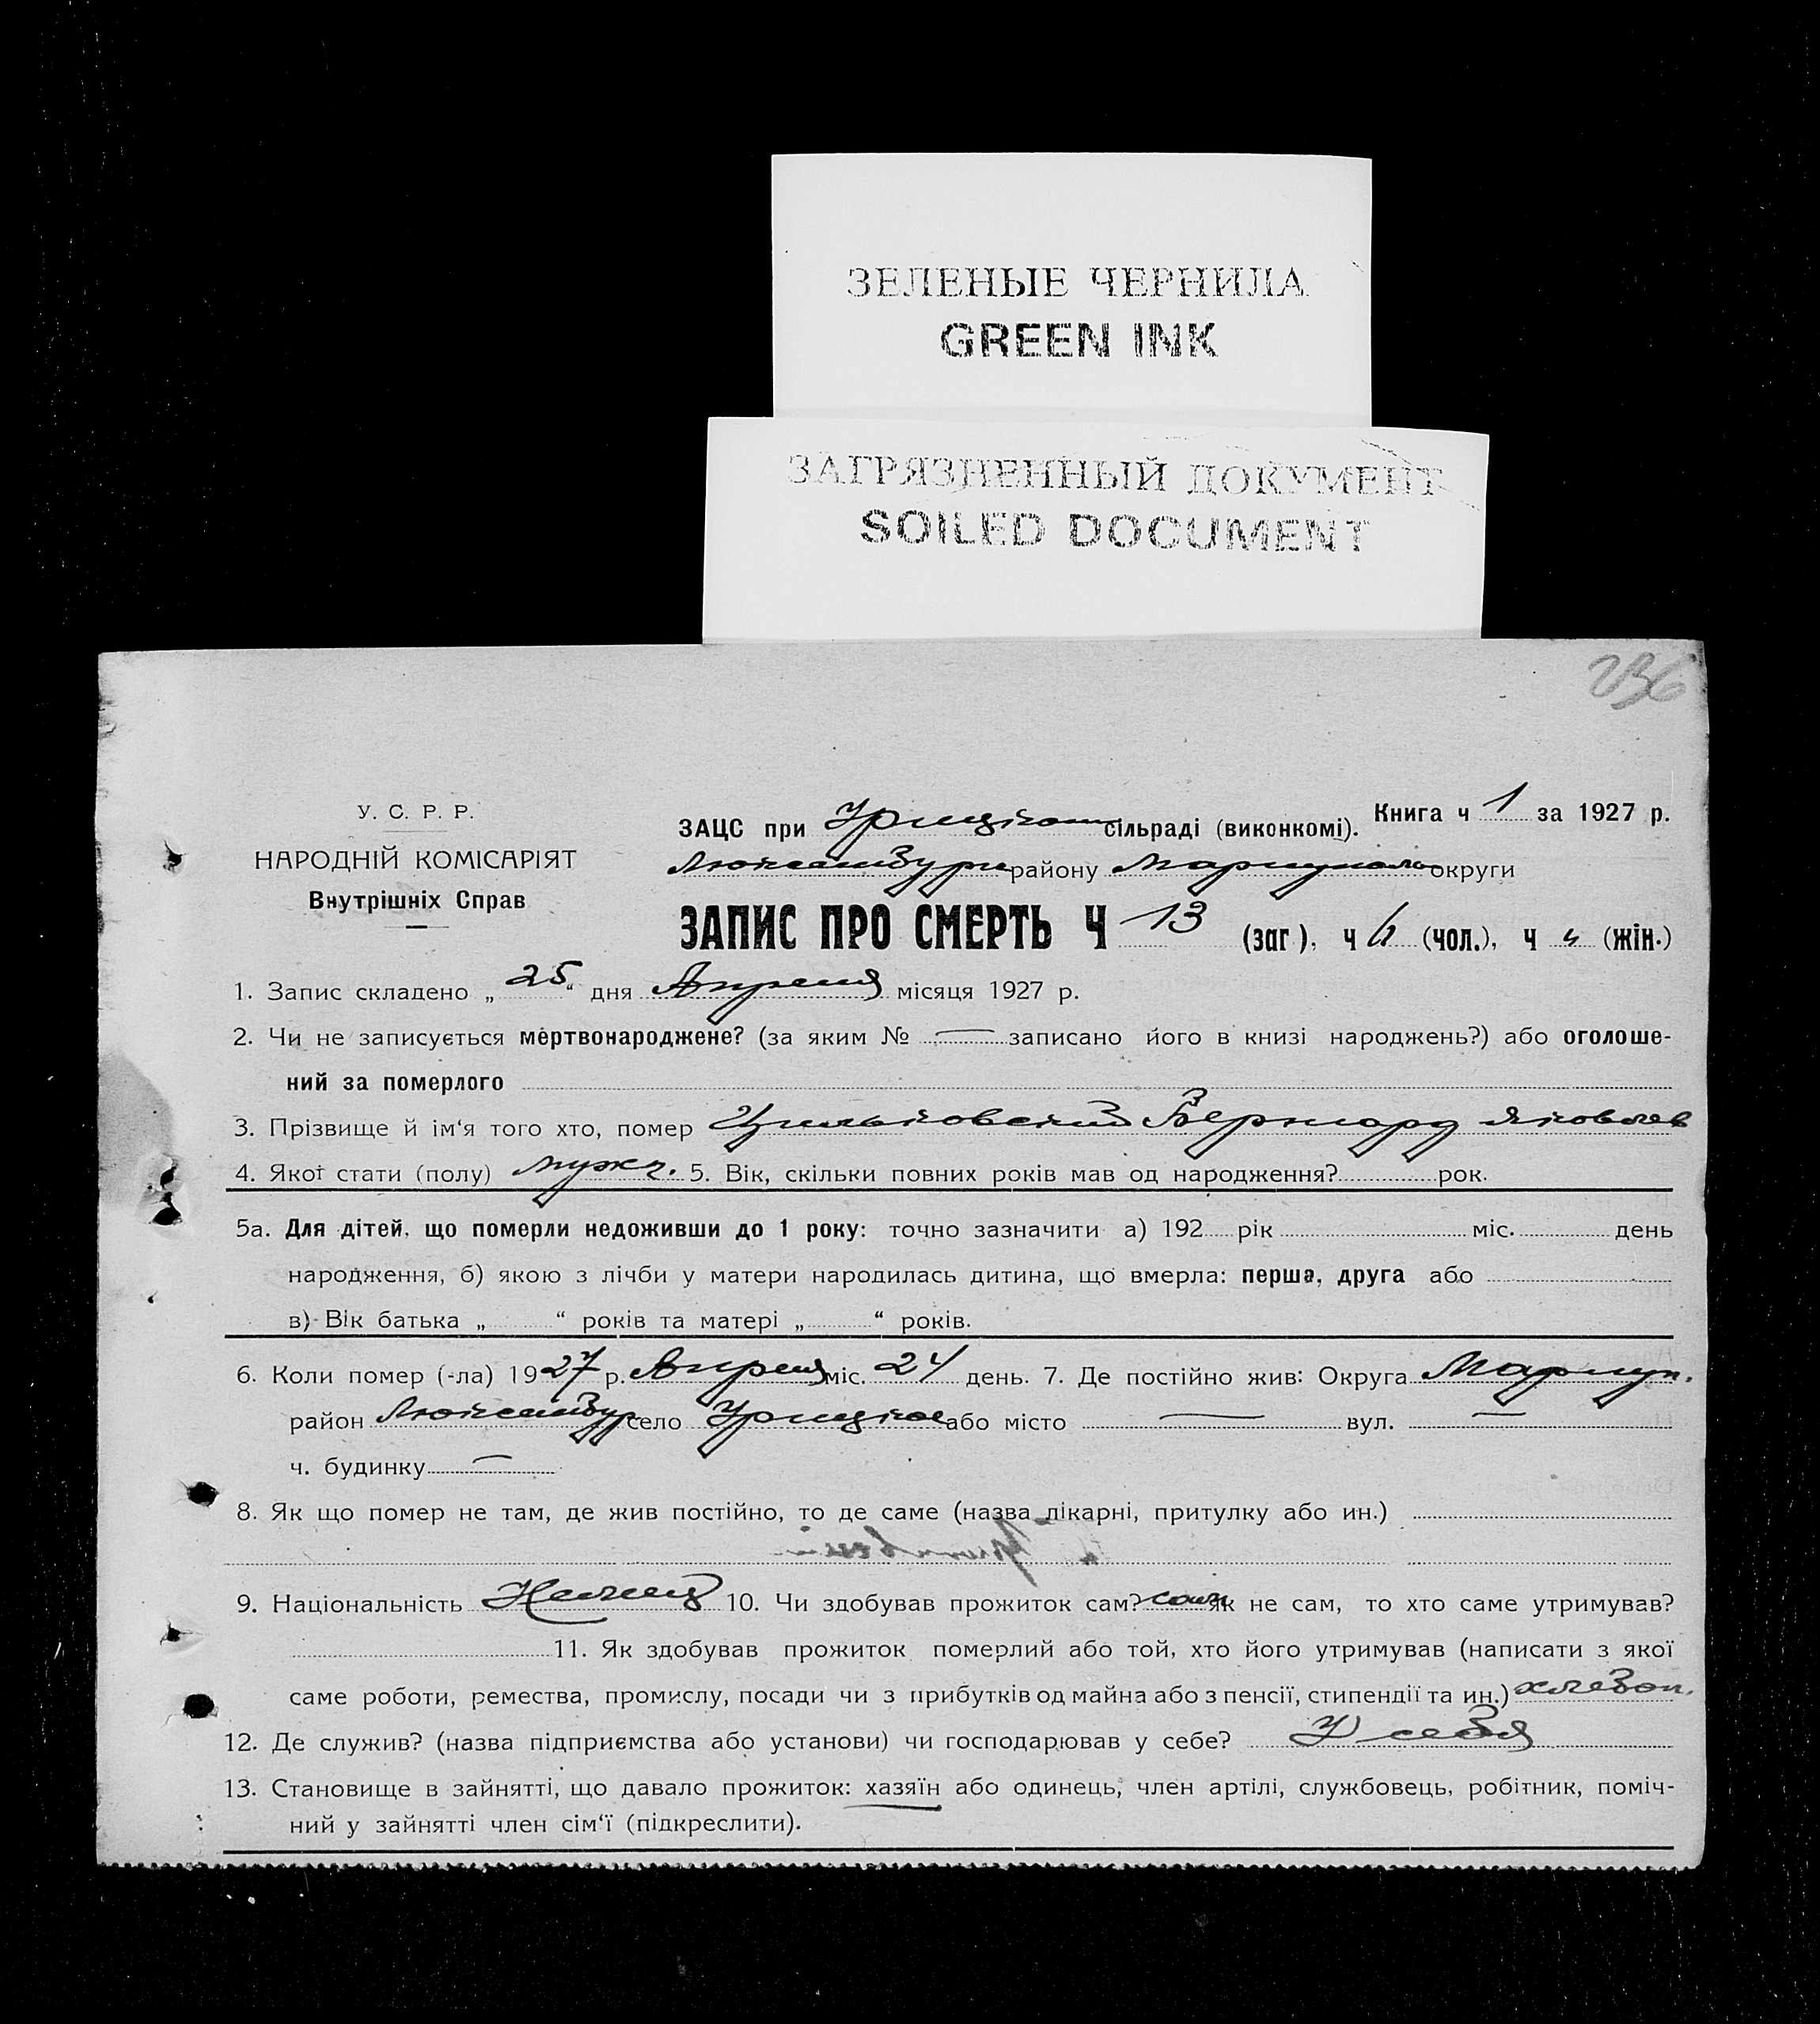 ЗЕЛЕНЫЕ ЧЕРНИЛА
GREEN INK
ЗАГРЯЗНЕННЫЙ ДОКУМЕНТ
SOILED DOCUMENT
236
У. С. Р. Р.
НАРОДНІЙ КОМІСАРІЯТ
Внутрішніх Справ
Книга ч 1 за 1927 р.
ЗАЦС при Урицком сільраді (виконкомі).
Люксембург району Мариуполь округи
ЗАПИС ПРО СМЕРТЬ Ч 13 (заг), ч (чол.), ч „ (жін.)
1. Запис складено „25“ дня Апреля місяця 1927 р.
2. Чи не записується мертвонароджене? (за яким № — записано його в книзі народжень?) або оголоше-
ний за померлого
3. Прізвище й ім'я того хто, помер Цильковский Бернард Яковлев
4. Якої стати (полу) мужч. 5. Вік, скільки повних років мав од народження? рок.
5а. Для дітей, що померли недоживши до 1 року: точно зазначити а) 192 рік міс. день
народження, б) якою з лічби у матери народилась дитина, що вмерла: перша, друга або
в) Вік батька „ “ років та матері „ “ років.
6. Коли помер (-ла) 1927 р. Апреля міс. 24 день. 7. Де постійно жив: Округа Мариуп.
район Люксембур село Урицкое або місто — вул. —
ч. будинку —
8. Як що помер не там, де жив постійно, то де саме (назва лікарні, притулку або ин.)
9. Національність Немец 10. Чи здобував прожиток сам? сам як не сам, то хто саме утримував?
11. Як здобував прожиток померлий або той, хто його утримував (написати з якої
саме роботи, ремества, промислу, посади чи з прибутків од майна або з пенсії, стипендії та ин.) хлебоп.
12. Де служив? (назва підприємства або установи) чи господарював у себе? У себя
13. Становище в зайнятті, що давало прожиток: хазяїн або одинець, член артілі, службовець, робітник, поміч-
ний у зайнятті член сім'ї (підкреслити).